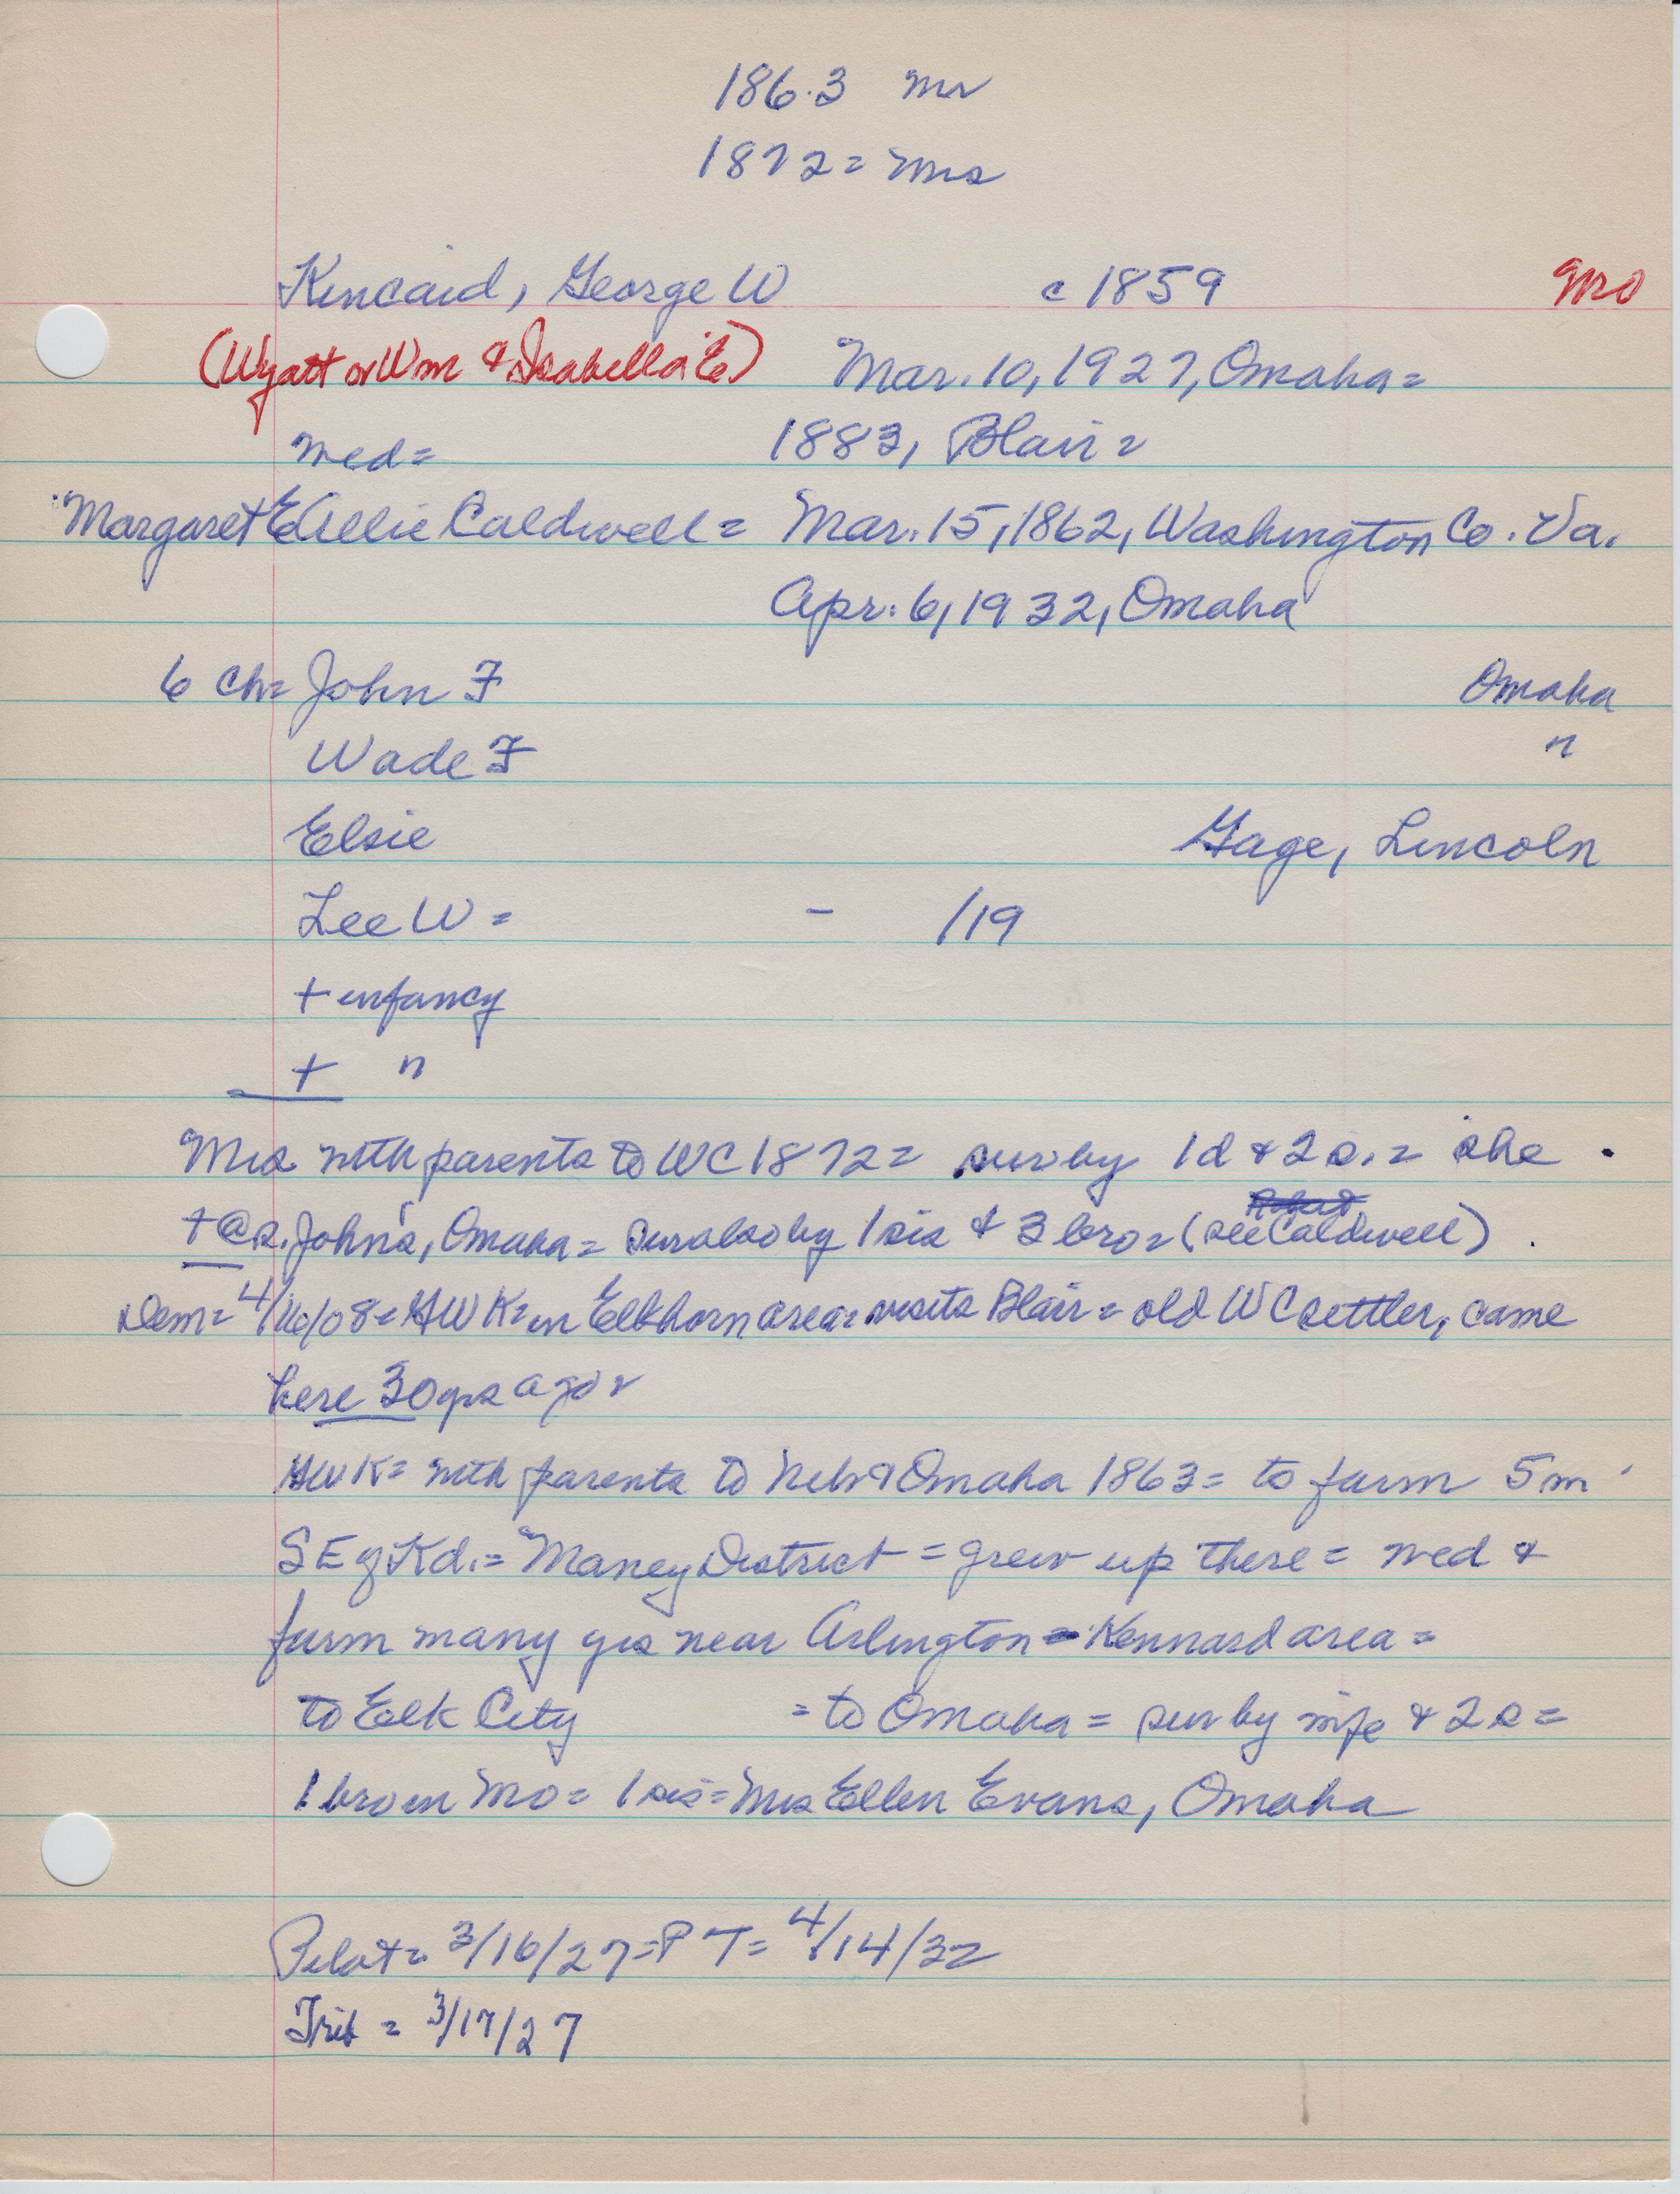 1863 Mr
1872 = Mrs
Kincaid, George W c 1859 Mo
(Wyatt or Wm & Isabella E) Mar. 10, 1927, Omaha =
wed = 1883, Blair =
Margaret E Allie Caldwell = Mar. 15, 1862, Washington Co. Va.
Apr. 6, 1932, Omaha
6 ch = John F Omaha
Wade F "
Elsie Gage, Lincoln
Lee W = - /19
+ infancy
+ "
Mrs with parents to WC 1872 = sur by 1 d & 2 s. = she
+ @ s. John's, Omaha = sur also by 1 sis & 3 bro = (see Caldwell).
Dem = 4/16/08 = GWK = in Elkhorn area = visits Blair = old WC settler, came
here 30 yrs ago =
GWK = with parents to Neb & Omaha 1863 = to farm 5 m
SE of Kd. = Maney District = grew up there = wed &
farm many yrs near Arlington = Kennard area =
to Elk City = to Omaha = sur by wife & 2 s =
1 bro in Mo = 1 sis = Mrs Ellen Evans, Omaha
Pilot = 3/16/27 = PT = 4/14/32
Trib = 3/17/27